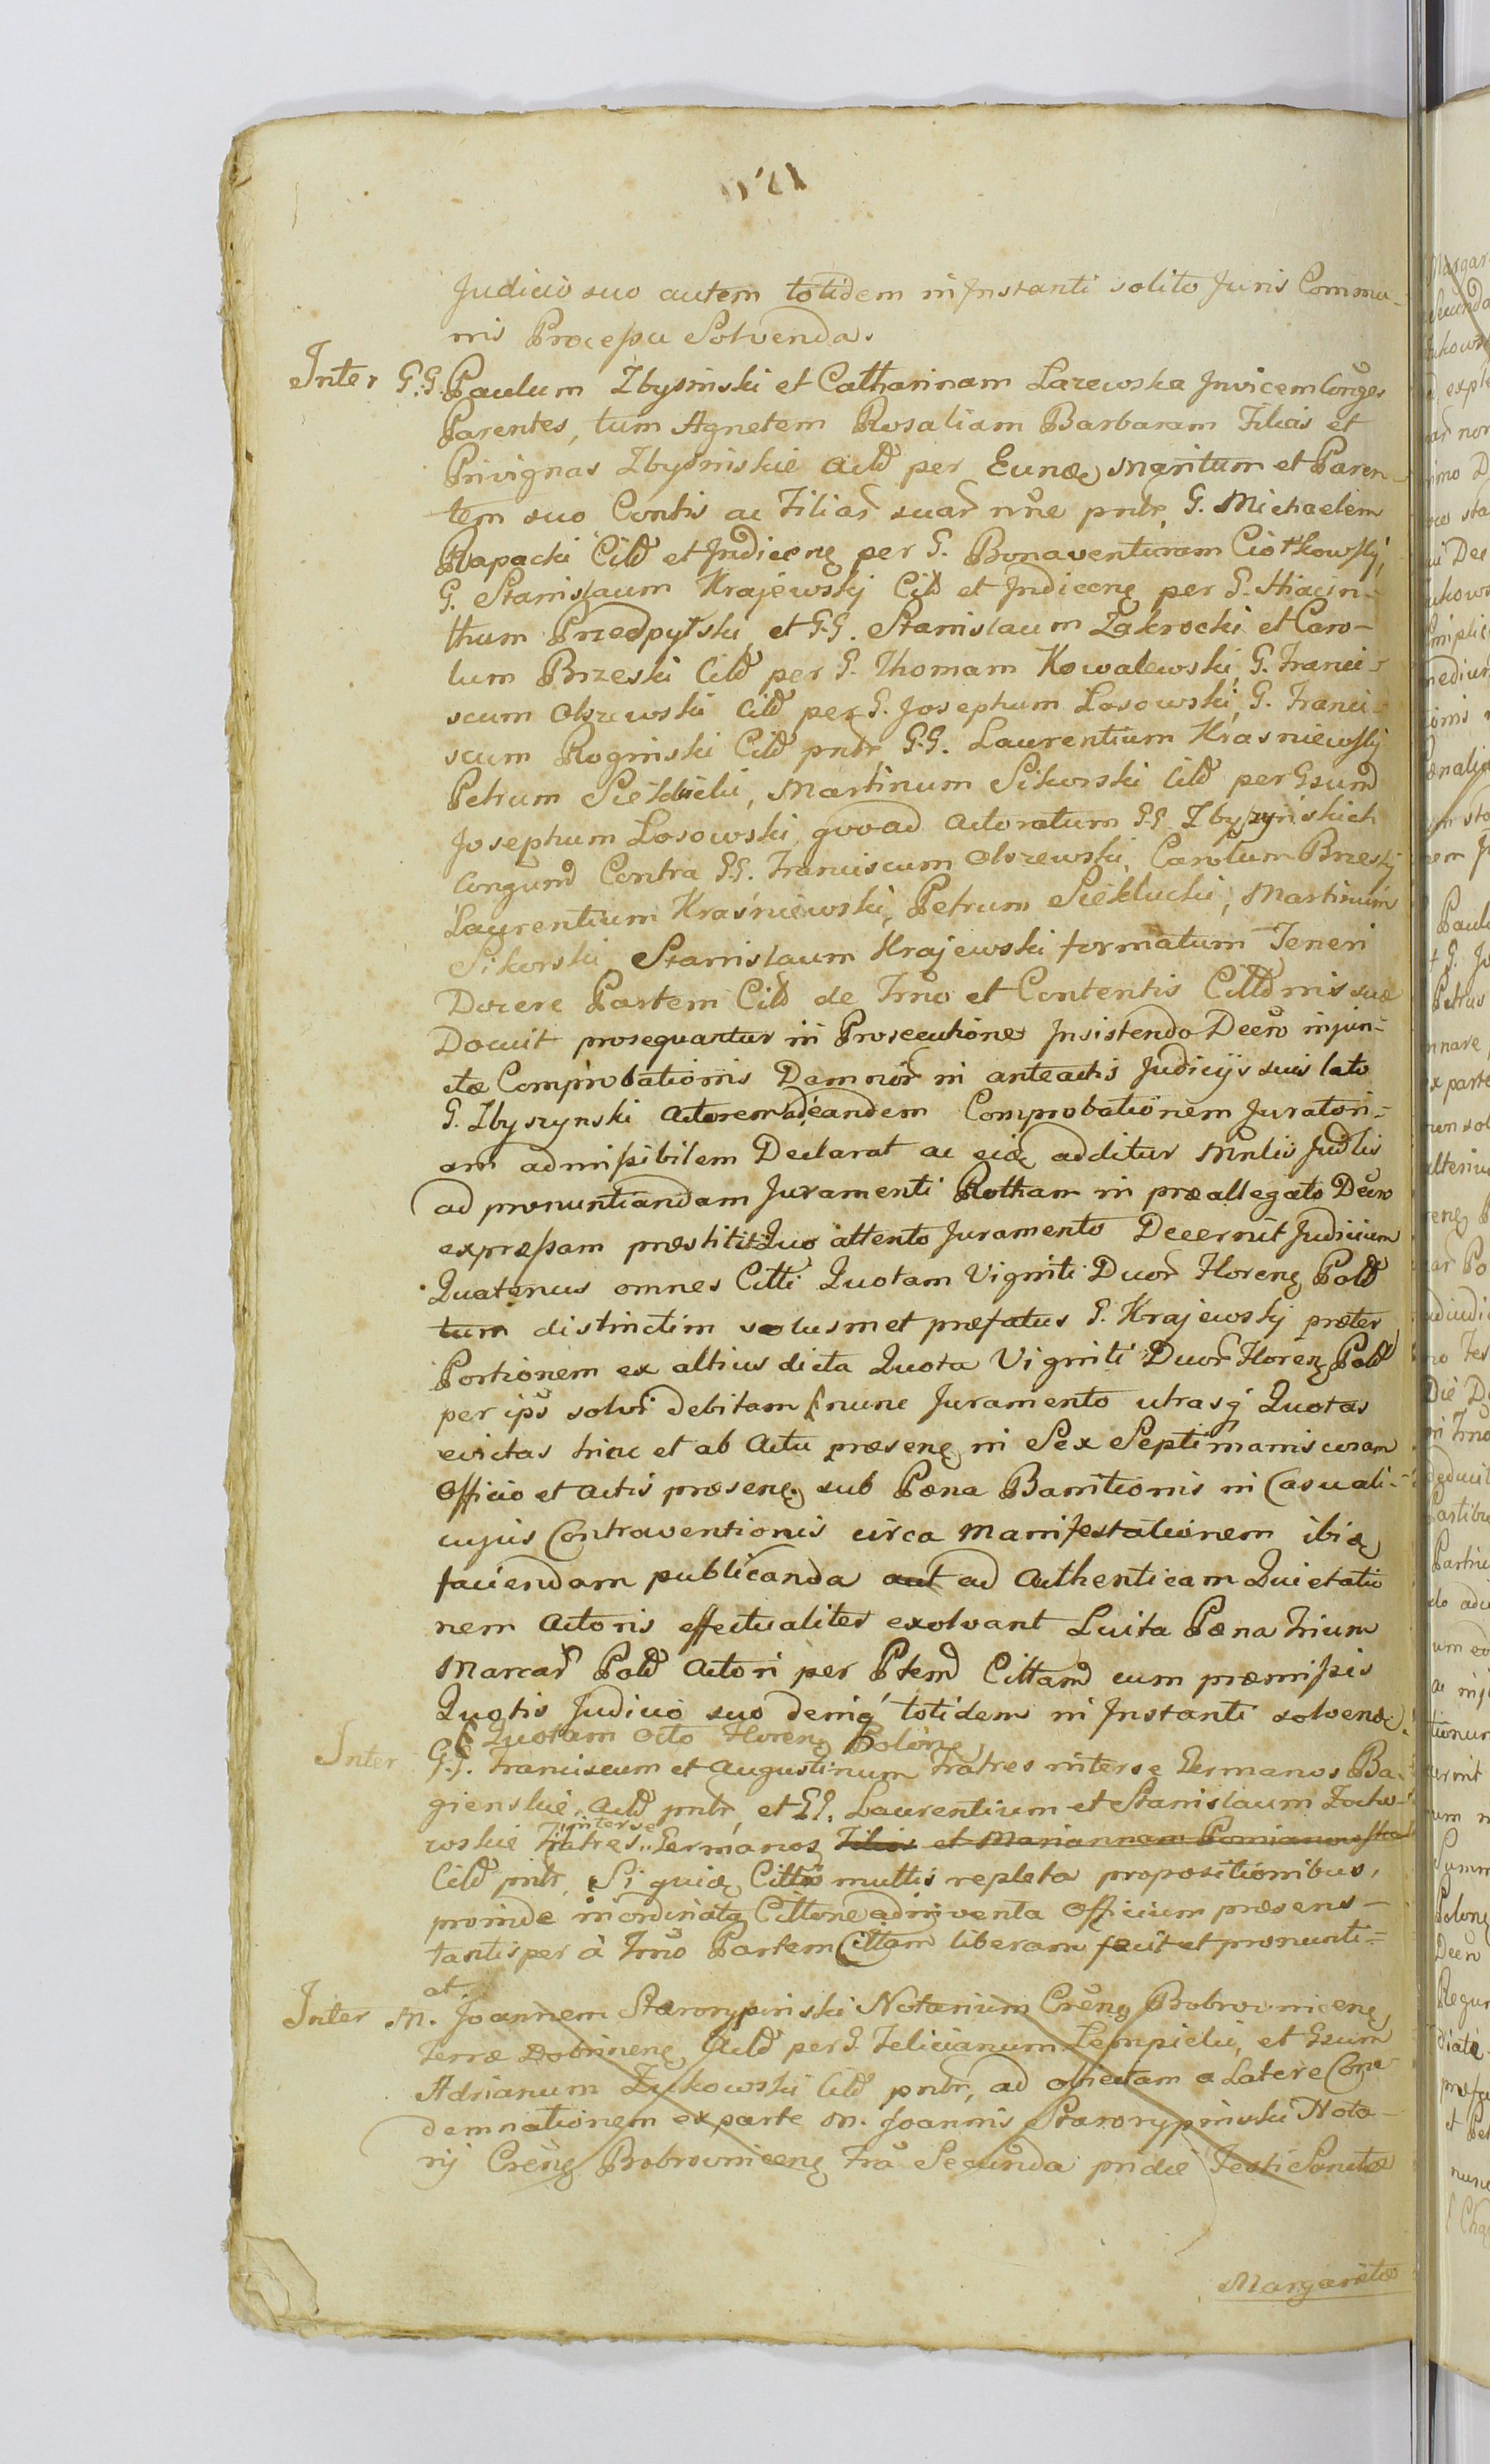 Judicio suo autem totidem in Instanti solito Juris Commu-
nis Processu Solvenda.
Inter G.G. Paulum Zbysinski et Catharinam Lazewska Invicem Conges
Parentes, tum Agnetem Rosaliam Barbaram Filias et
Privignas Zbysinskie Actd per Eund Maritum et Paren-
tem suo Contis ac Filiar suar nne pntr, G. Michaelem
Rapacki Citd et Indicen per G. Bonaventuram Ciotkowskj,
G. Stanislaum Krajewskj Citd et Indicen per G. Hiacin-
thum Przedpytski, et G.G. Stanislaum Zakrocki et Caro-
lum Brzeski Citd per G. Thomam Kowalewski, G. Franci-
scum Olszewski Citd per G. Josephum Losowski, G. Franci-
scum Roginski Citd pntr, G.G. Laurentium Krasniewskj
Petrum Siekłucki, Martinum Sikorski Citd per Gsumd
Josephum Losowski, quoad Actoratum G.G. Zbyszynskich
Congumd Contra G.G. Franciscum Olszewski, Carolum Brzeskj
Laurentium Kraśniewski, Petrum Siekłucki, Martinum
Sikorski Stanislaum Krajewski formatum Teneri
Docere Partem Citd de Trno et Contentis Cittdnis suæ
Docuit prosequantur in Prosecutione Insistendo Decro injun-
ctæ Comprobationis Damnor in anteactis Judicijs suis lato
G. Zbyszynski Actorem ad eandem Comprobationem Juratori-
am admissibilem Declarat ac eid additur Mnlis Judlis
ad pronuntiandam Juramenti Rotham in præallegato Decro
expressam præstitit Quo attento Juramento Decernit Judicium
Quatenus omnes Citti Quotam Viginti Duor Floren Pold
tum distinctim solusmet præfatus G. Krajewskj præter
Portionem ex altius dicta Quota Viginti Duor Floren Pold
per ips solvi debitam nunc Juramento utrasq Quotas
evictas hinc et ab Actu præsen in Sex Septimanis coram
Officio et Actis præsen sub Pæna Banitionis in Casu ali-
cujus Contraventionis circa Manifestationem ibid
faciendam publicanda aut ad Authenticam Quietatio
nem Actoris effectualiter exolvant Luita Pæna trium
Marcar Pold Actori per Ptemd Cittamd cum præmissis
Quotis Judicio suo deniq totidem in Instanti solvend
Quotam octo Floren Polon
Inter G.G. Franciscum et Augustinum Fratres interse Germanos Ba-
gienskie Actd pntr, et G.G. Laurentium et Stanislaum Zocho-
interse
wskie Fratres Germanos Filios et Mariannam
Citd pntr, Si quid Cittio multis repleta propositionibus,
proinde inordinata Cittone adinventa Officium præsens
tantisper à Trno Partem Cittam liberam facit et pronunti-
at
Inter M. Joannem Starorypinski Notarium Cren Bobrovnicen
Terræ Dobrinen Actd per G. Felicianum Lempicki, et Gsum
Adrianum Zukowski Citd pntr, ad objectam a Latere Con-
demnationem ex parte M. Joannis Starorypinski Nota-
rij Cren Bobrovnicen Tra Secunda pridie Festi Sanctæ
Margaritæ